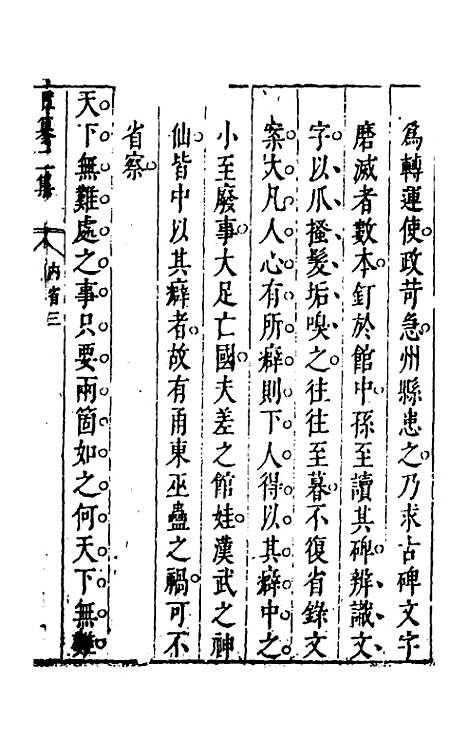 爲轉運使政苛急州縣患之乃求古碑文字
磨滅者數本釘於館中孫至讀其碑辨識文
字以爪搔髮垢嗅之往往至暮不復省錄文
案大凡人心有所癖則下人得以其癖中之
小至廢事大足亡國夫差之館娃漢武之神
仙皆中以其癖者故有甬東巫蠱之禍可不
省察
天下無難處之事只要兩箇如之何天下無難
二集 內省 三